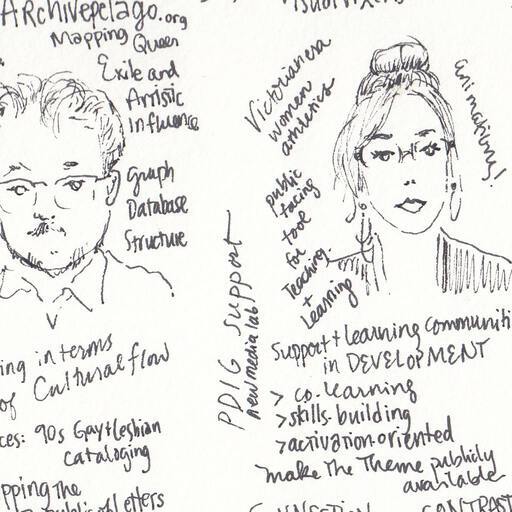 ARchivepelago.org
Mapping Queer
Exile and
Artistic
Influence
Graph
Database
Structure
ing in terms
of Cultural flow
ces: 90s Gay+Lesbian
cataloging
pping The
of Letters
Victorian era
women
athletics
animations!
public
facing
tool
for
Teaching
+
Learning
PDIG support
new media lab
Support + learning communiti
in DEVELOPMENT
> co-learning
> skills-building
> activation-oriented
make The Theme publicly
available
CONTRAST